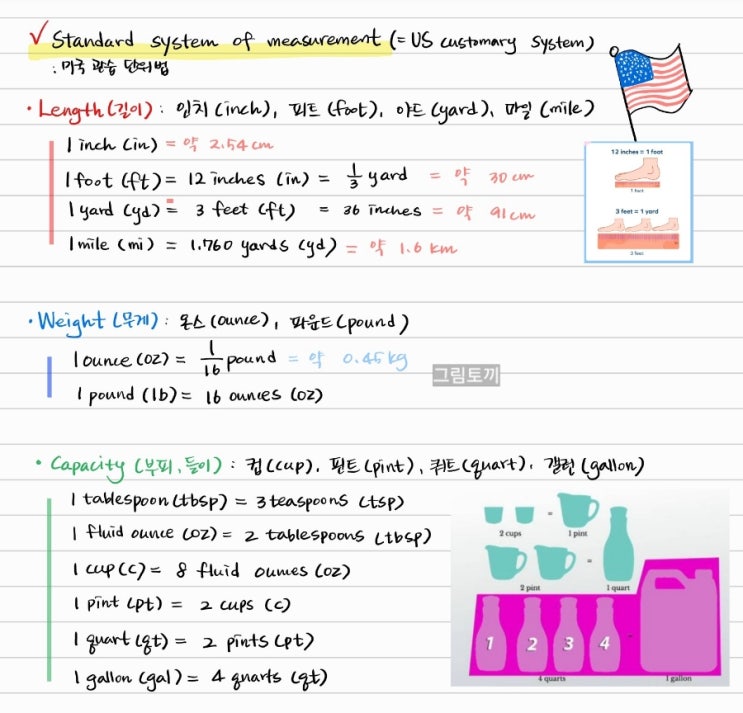 ✓ Standard system of measurement (= US customary system)
: 미국 관습 단위법
• Length (길이) : 인치 (inch), 피트 (foot), 야드 (yard), 마일 (mile)
1 inch (in) = 약 2.54 cm
1 foot (ft) = 12 inches (in) = 1/3 yard = 약 30 cm
1 yard (yd) = 3 feet (ft) = 36 inches = 약 91 cm
1 mile (mi) = 1.760 yards (yd) = 약 1.6 km
12 inches = 1 foot
1 foot
3 feet = 1 yard
3 feet
• Weight (무게) : 온스 (ounce), 파운드 (pound)
1 ounce (oz) = 1/16 pound = 약 0.45 kg
1 pound (lb) = 16 ounces (oz)
그림토끼
• Capacity (부피, 들이) : 컵 (cup), 핀트 (pint), 쿼트 (quart), 갤런 (gallon)
1 tablespoon (tbsp) = 3 teaspoons (tsp)
1 fluid ounce (oz) = 2 tablespoons (tbsp)
1 cup (c) = 8 fluid ounces (oz)
1 pint (pt) = 2 cups (c)
1 quart (qt) = 2 pints (pt)
1 gallon (gal) = 4 quarts (qt)
2 cups = 1 pint
2 pint = 1 quart
1 2 3 4
4 quarts 1 gallon